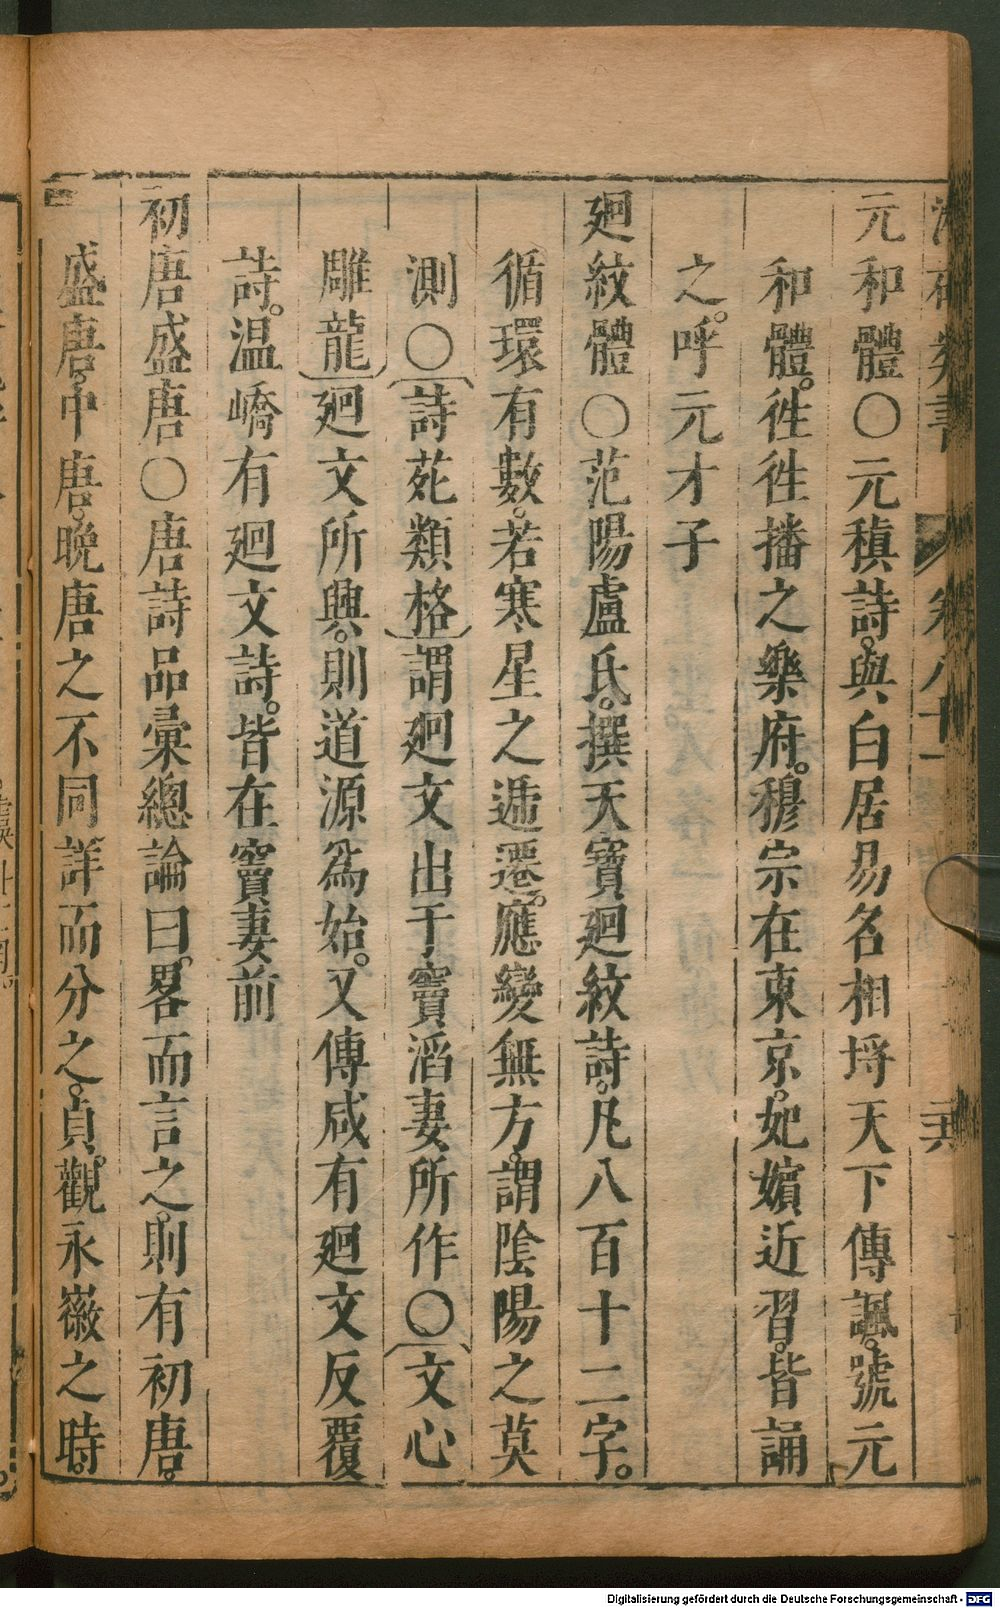 卷八十一
元和體〇元稹詩。與白居易名相埒天下傳諷。號元
和體。徃徃播之樂府。穆宗在東京。妃嬪近習。皆誦
之。呼元才子
廻紋體〇范陽盧氏。撰天寶廻紋詩。凡八百十二字。
循環有數。若寒星之遞遷。應變無方。謂陰陽之莫
測〇〔詩苑類格〕謂廻文出于竇滔妻所作〇〔文心
雕龍〕廻文所興。則道源爲始。又傅咸有廻文反覆
詩。温嶠有廻文詩。皆在竇妻前
初唐盛唐〇唐詩品彙總論曰。畧而言之。則有初唐。
盛唐。中唐。晚唐之不同詳而分之。貞觀永徽之時。
Digitalisierung gefördert durch die Deutsche Forschungsgemeinschaft - DFG